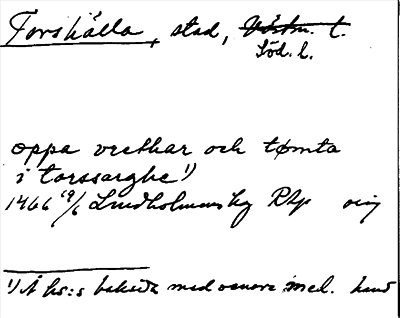 Torshälla, stad, Västm. l.
Söd. l.
oppa vrethar och tømta
i torssarghe 1)
1466 19/6 Lindholmens kg RAp orig
1) Å hs:s baksida med senare med. hand